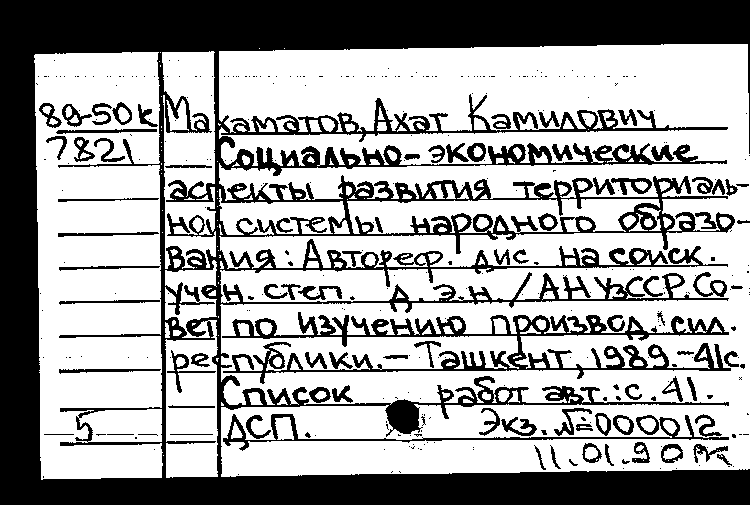 89-50к Махаматов, Ахат Камилович
7821 Социально-экономические
аспекты развития территориаль-
ной системы народного образо-
вания: Автореф. дис. на соиск.
учен. степ. д.э.н. / АН УзССР. Со-
вет по изучению производ. сил.
республики. – Ташкент, 1989. – 41с.
Список работ авт.: с. 41.
5 ДСП. Экз. № 000012
11.01.90